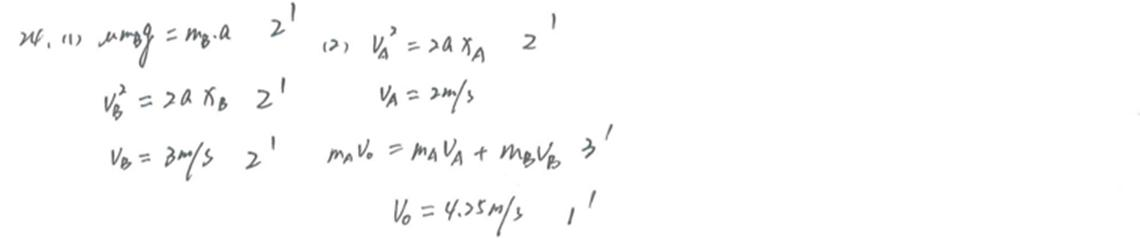 24. (1) μm_Bg = m_B·a 2'
V_B² = 2a x_B 2'
V_B = 3m/s 2'
(2) V_A² = 2a x_A 2'
V_A = 2m/s
m_A V₀ = m_A V_A + m_B V_B 3'
V₀ = 4.25m/s 1'